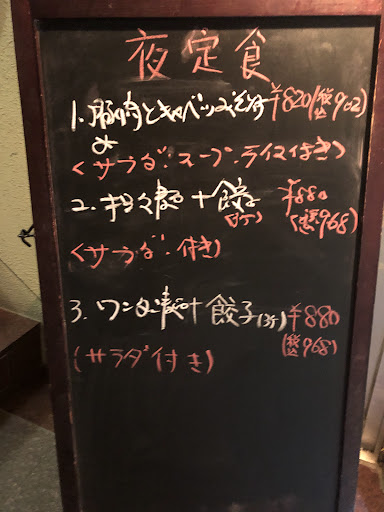 夜定食
1. 豚肉とキャベツみそ ¥820(税込902)
<サラダ・スープ・ライス付き>
2. 担々麺+餃子 ¥880
(3ケ) (税込968)
<サラダ・付き>
3. ワンタン麺+餃子(3ケ) ¥880
(サラダ付き) (税込968)